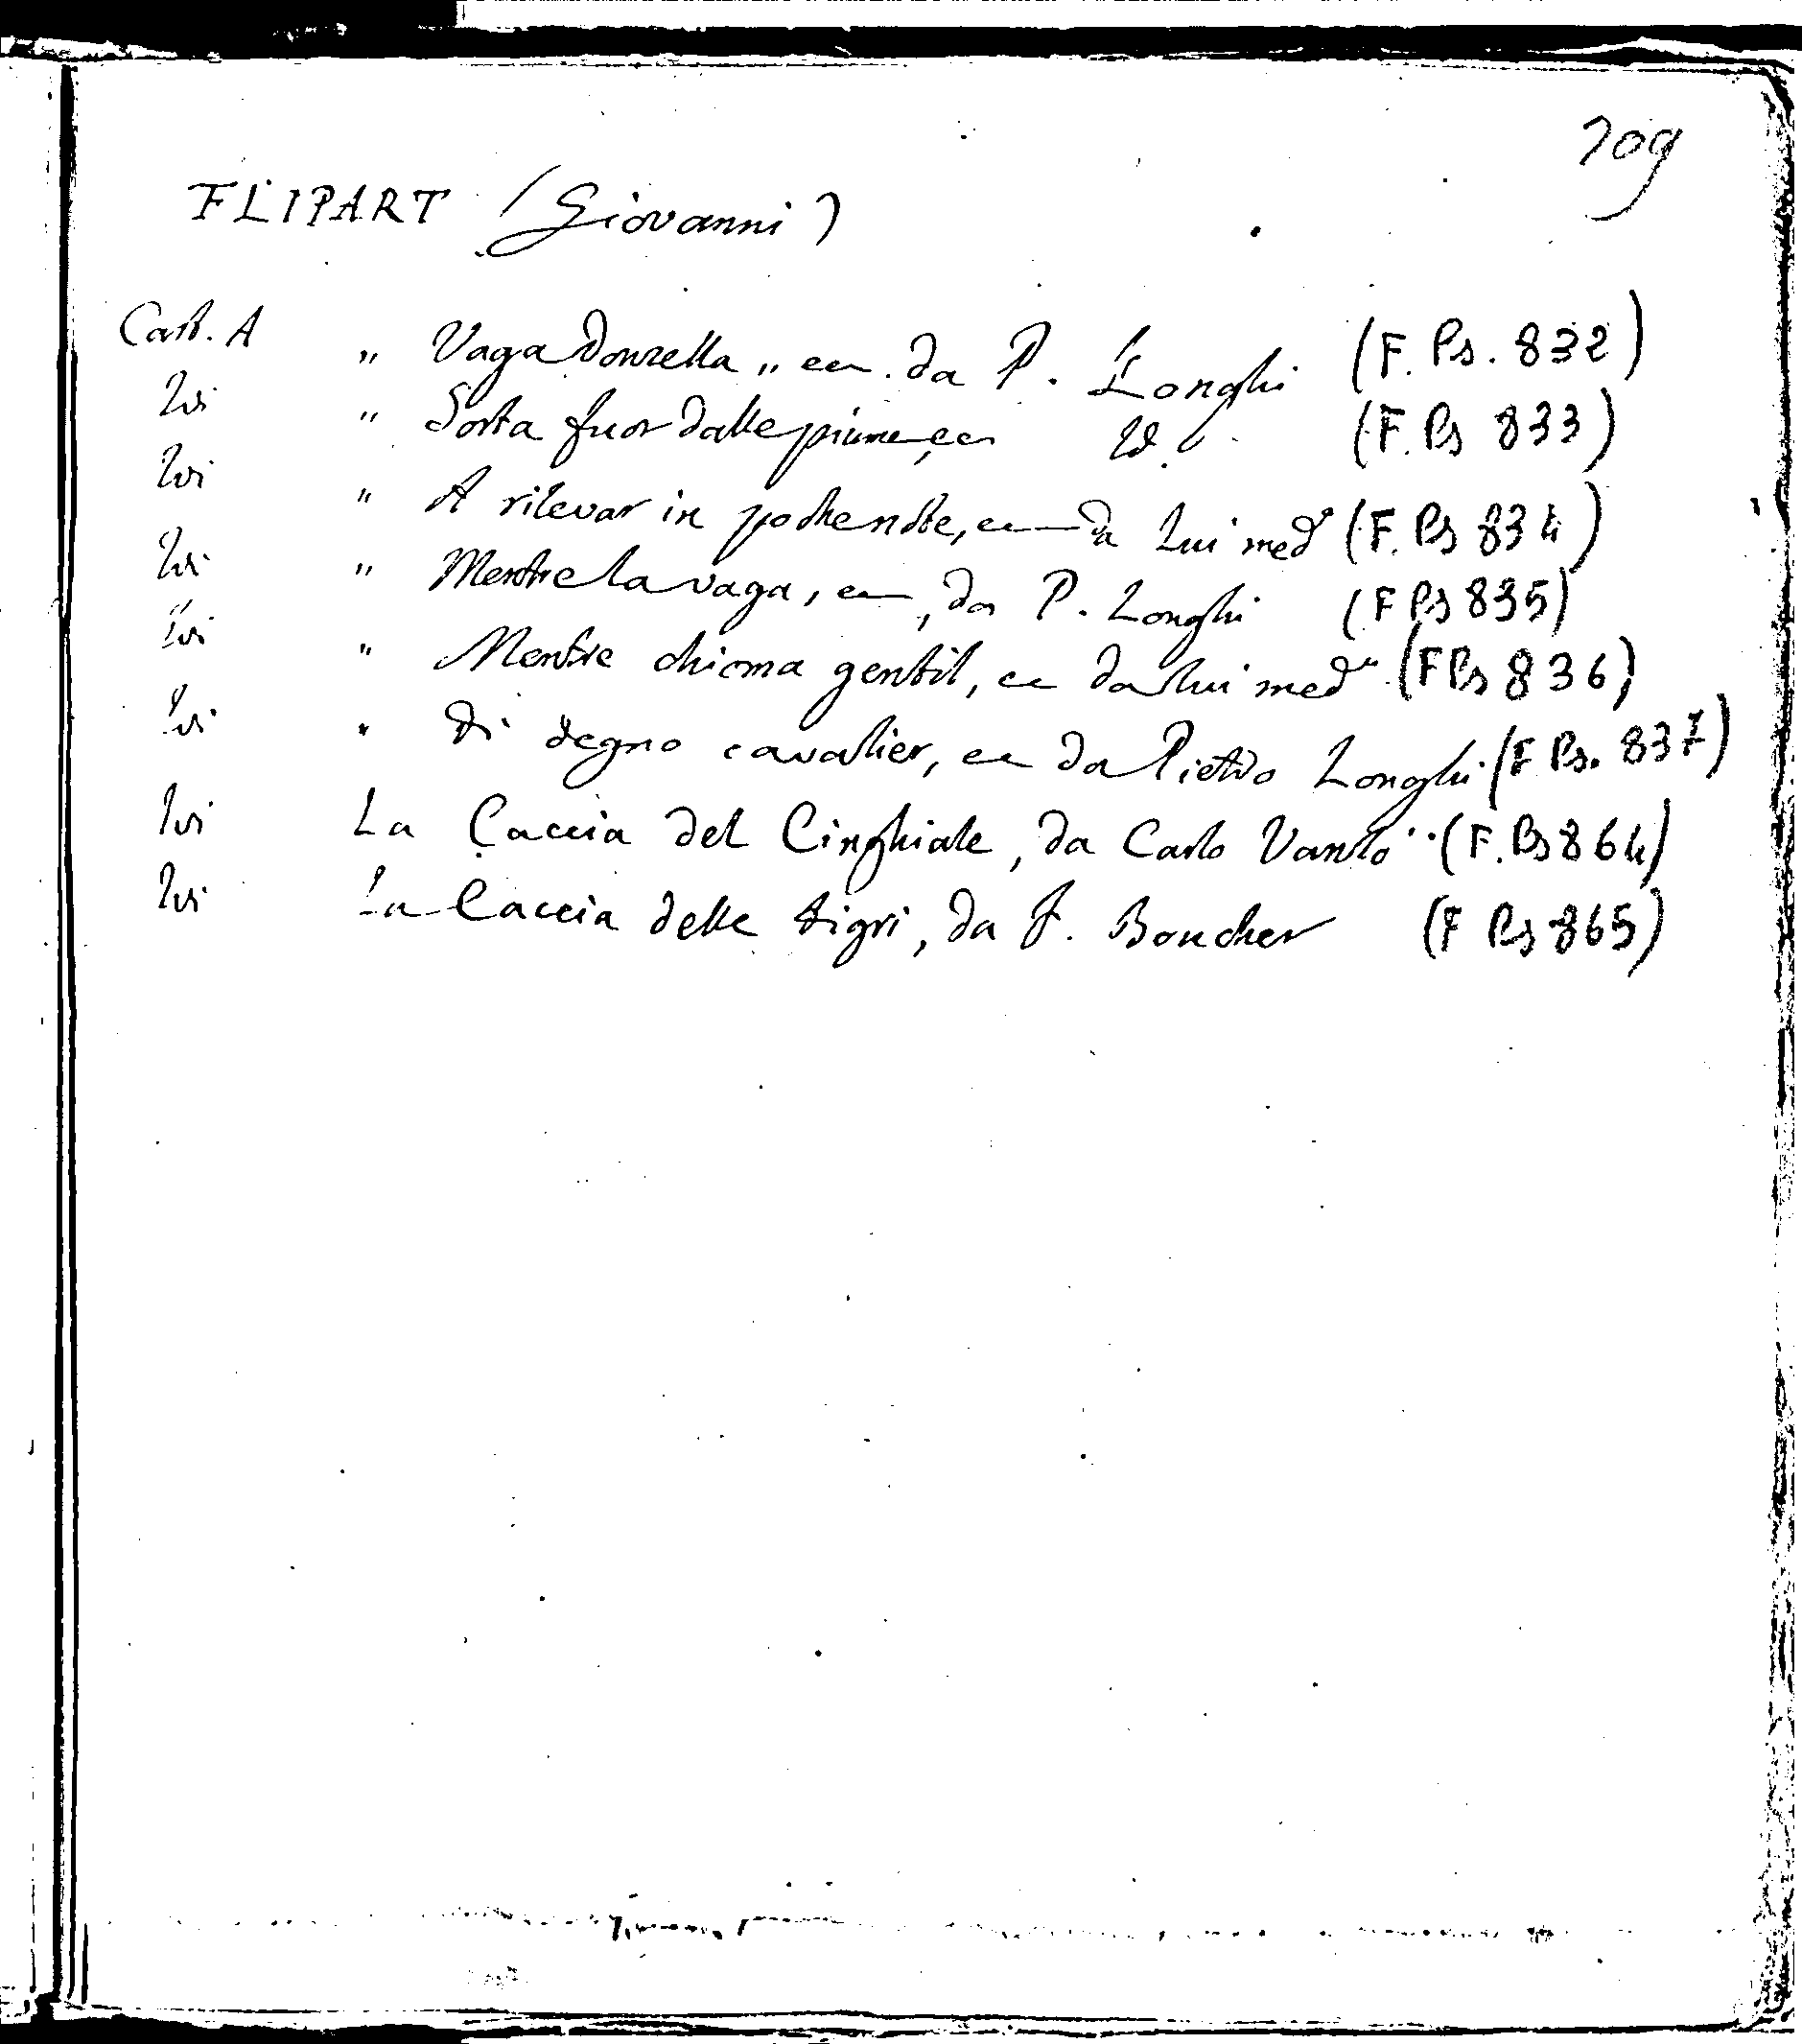 709
FLIPART (Giovanni)
Cart. A " Vaga Donzella " ecc. da P. Longhi (F. Ps. 832)
Ivi " Sorta fuor dalle piume, ecc Id. (F. Ps 833)
Ivi " A rilevar in potten dte, ecc da Lui med° (F. Ps 834)
Ivi " Mentre la vaga, ecc, da P. Longhi (F Ps 835)
Ivi " Mentre chioma gentil, ecc da lui med° (F Ps 836)
Ivi " Di degno cavalier, ecc da Pietro Longhi (F Ps. 837)
Ivi La Caccia del Cinghiale, da Carlo Vanlò (F. Ps 864)
Ivi La Caccia delle tigri, da F. Boucher (F Ps 865)